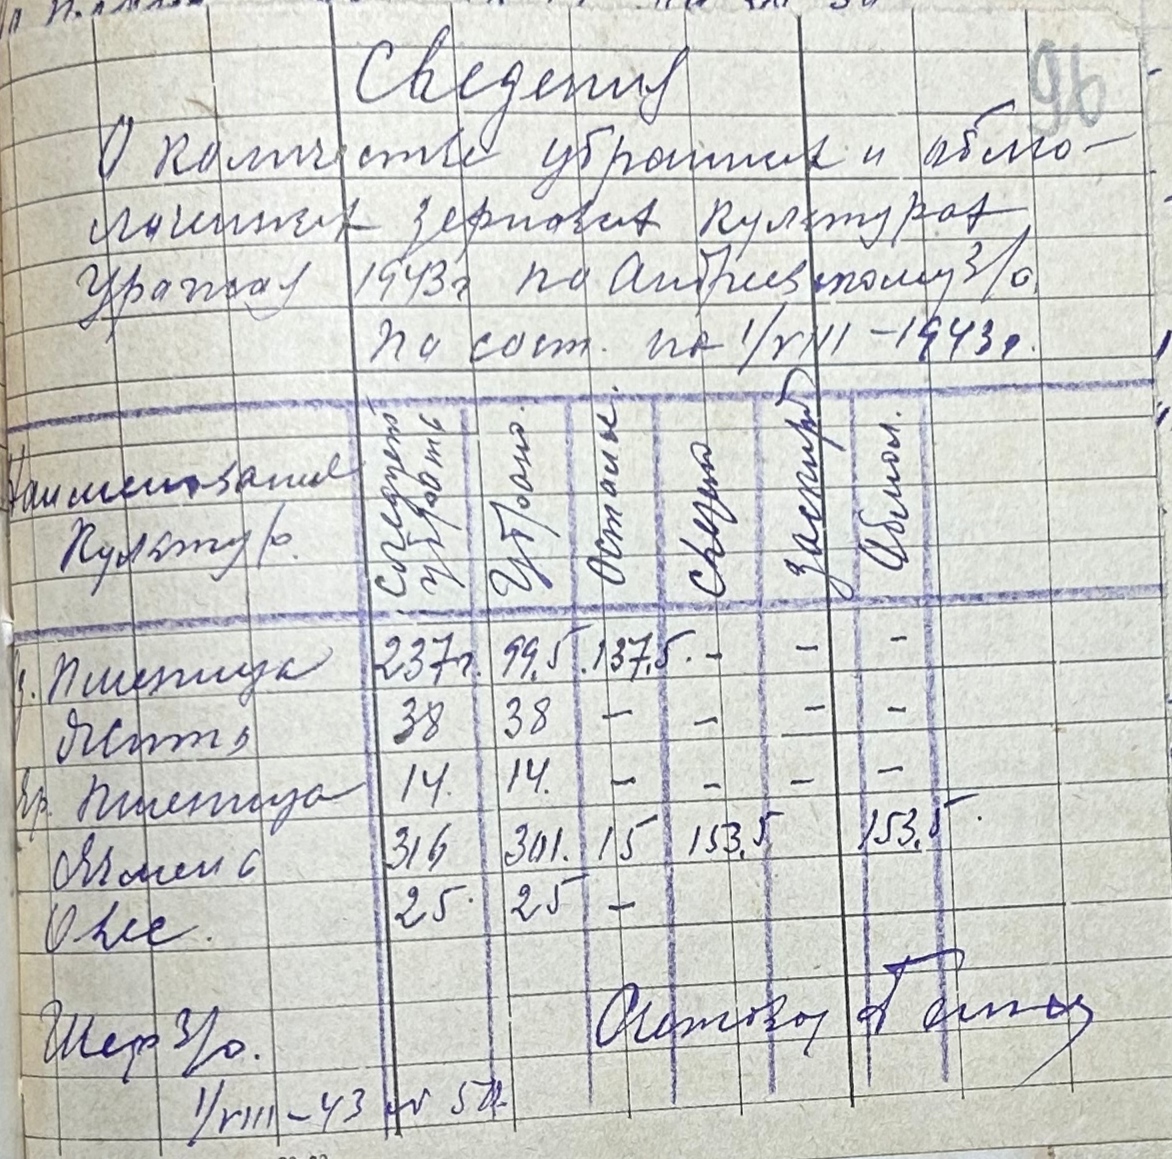 96
Сведения
О количестве убранных и абмо-
лоченных зерновых культурах
Уражая 1943г по Андреевскому З/о.
по сост. на 1/VIII – 1943г.
Наименования Культур. Следует убрать Убрано. Осталос. Свезено Заскирд Абмол.
з. Пшеница 237г. 99,5. 137,5. - - -
Жито 38 38 - - - -
Яр. Пшеница 14. 14. - - - -
Ячмень 316 301. 15 153,5 153,5.
Овес. 25. 25 -
Шеф З/о.
1/VIII – 43